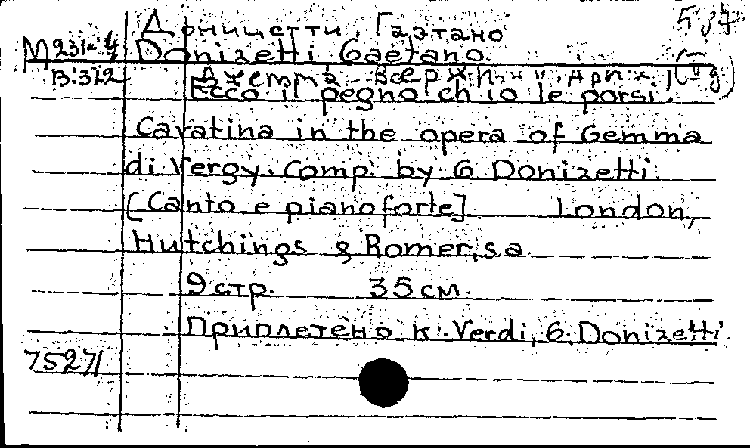 Доницетти, Гаэтано 537
М 231-4 Donizetti Gaetano.
В:312 Джемма
Ecco il pegno ch'io le porsi.
Cavatina in the opera of Gemma
di Vergy. Comp. by G Donizetti.
[Canto e pianoforte] London,
Hutchings & Romer, s.a.
9 стр. 35 см.
Приплетено к: Verdi, G. Donizetti.
75271